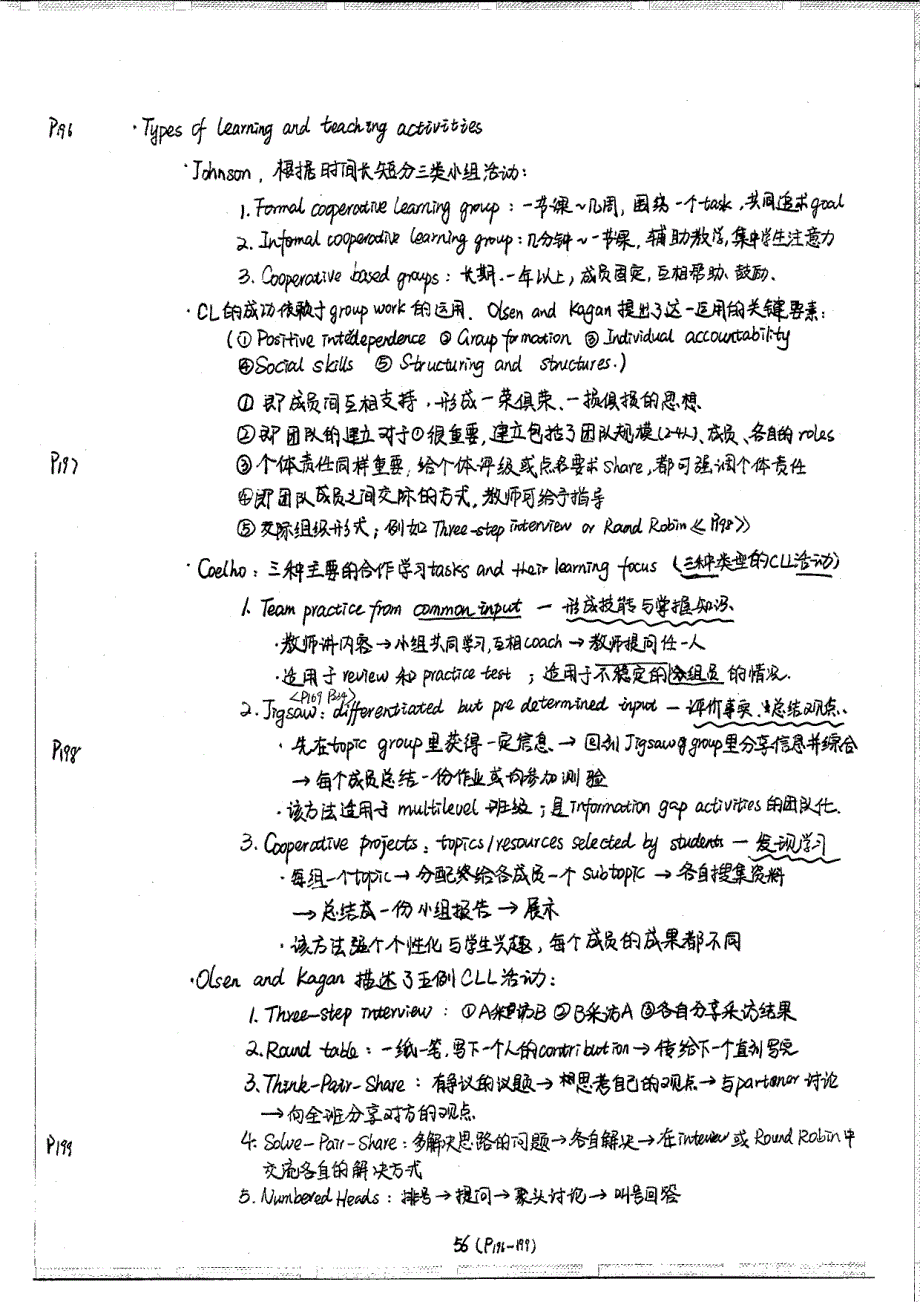 P196 ·Types of learning and teaching activities
·Johnson, 根据时间长短分三类小组活动:
1. Formal cooperative learning group: 一节课~几周, 围绕一个task, 共同追求goal
2. Informal cooperative learning group: 几分钟~一节课, 辅助教学, 集中学生注意力
3. Cooperative based groups: 长期、一年以上, 成员固定, 互相帮助、鼓励.
·CL的成功依赖于group work的运用. Olsen and Kagan提出了这一运用的关键要素:
(① Positive interdependence ② Group formation ③ Individual accountability
④Social skills ⑤ Structuring and structures.)
① 即成员间互相支持, 形成一荣俱荣、一损俱损的思想
②即团队的建立对于①很重要, 建立包括了团队规模(2-4人)、成员、各自的roles
P197 ③个体责任同样重要, 给个体评级或点名要求share, 都可强调个体责任
④即团队成员之间交际的方式, 教师可给予指导
⑤ 交际组织形式; 例如 Three-step interview or Round Robin《P198》
·Coelho: 三种主要的合作学习tasks and their learning focus (三种类型的CLL活动)
1. Team practice from common input — 形成技能与掌握知识.
·教师讲内容→小组共同学习, 互相coach→教师提问任一人
·适用于review和practice test; 适用于不稳定的组员的情况.
<P169 P34>
2. Jigsaw: differentiated but predetermined input — 评价事实、总结观点.
P198 ·先在topic group里获得一定信息→回到Jigsaw group里分享信息并综合
→每个成员总结一份作业或均参加测验
·该方法适用于multilevel班级; 是information gap activities的团队化.
3. Cooperative projects: topics/resources selected by students — 发现学习
·每组一个topic→分配给各成员一个subtopic→各自搜集资料
→总结成一份小组报告→展示
·该方法强个个性化与学生兴趣, 每个成员的成果都不同
·Olsen and Kagan描述了五例CLL活动:
1. Three-step interview: ①A采访B ②B采访A ③各自分享采访结果
2. Round table: 一纸一笔, 写下一个人的contribution→传给下一个直到写完
3. Think-Pair-Share: 有争议的议题→思考自己的观点→与partener讨论
→向全班分享对方的观点
P199 4. Solve-Pair-Share: 多解决思路的问题→各自解决→在interview或Round Robin中
交流各自的解决方式
5. Numbered Heads: 排号→提问→聚头讨论→叫号回答
56 (P196-199)